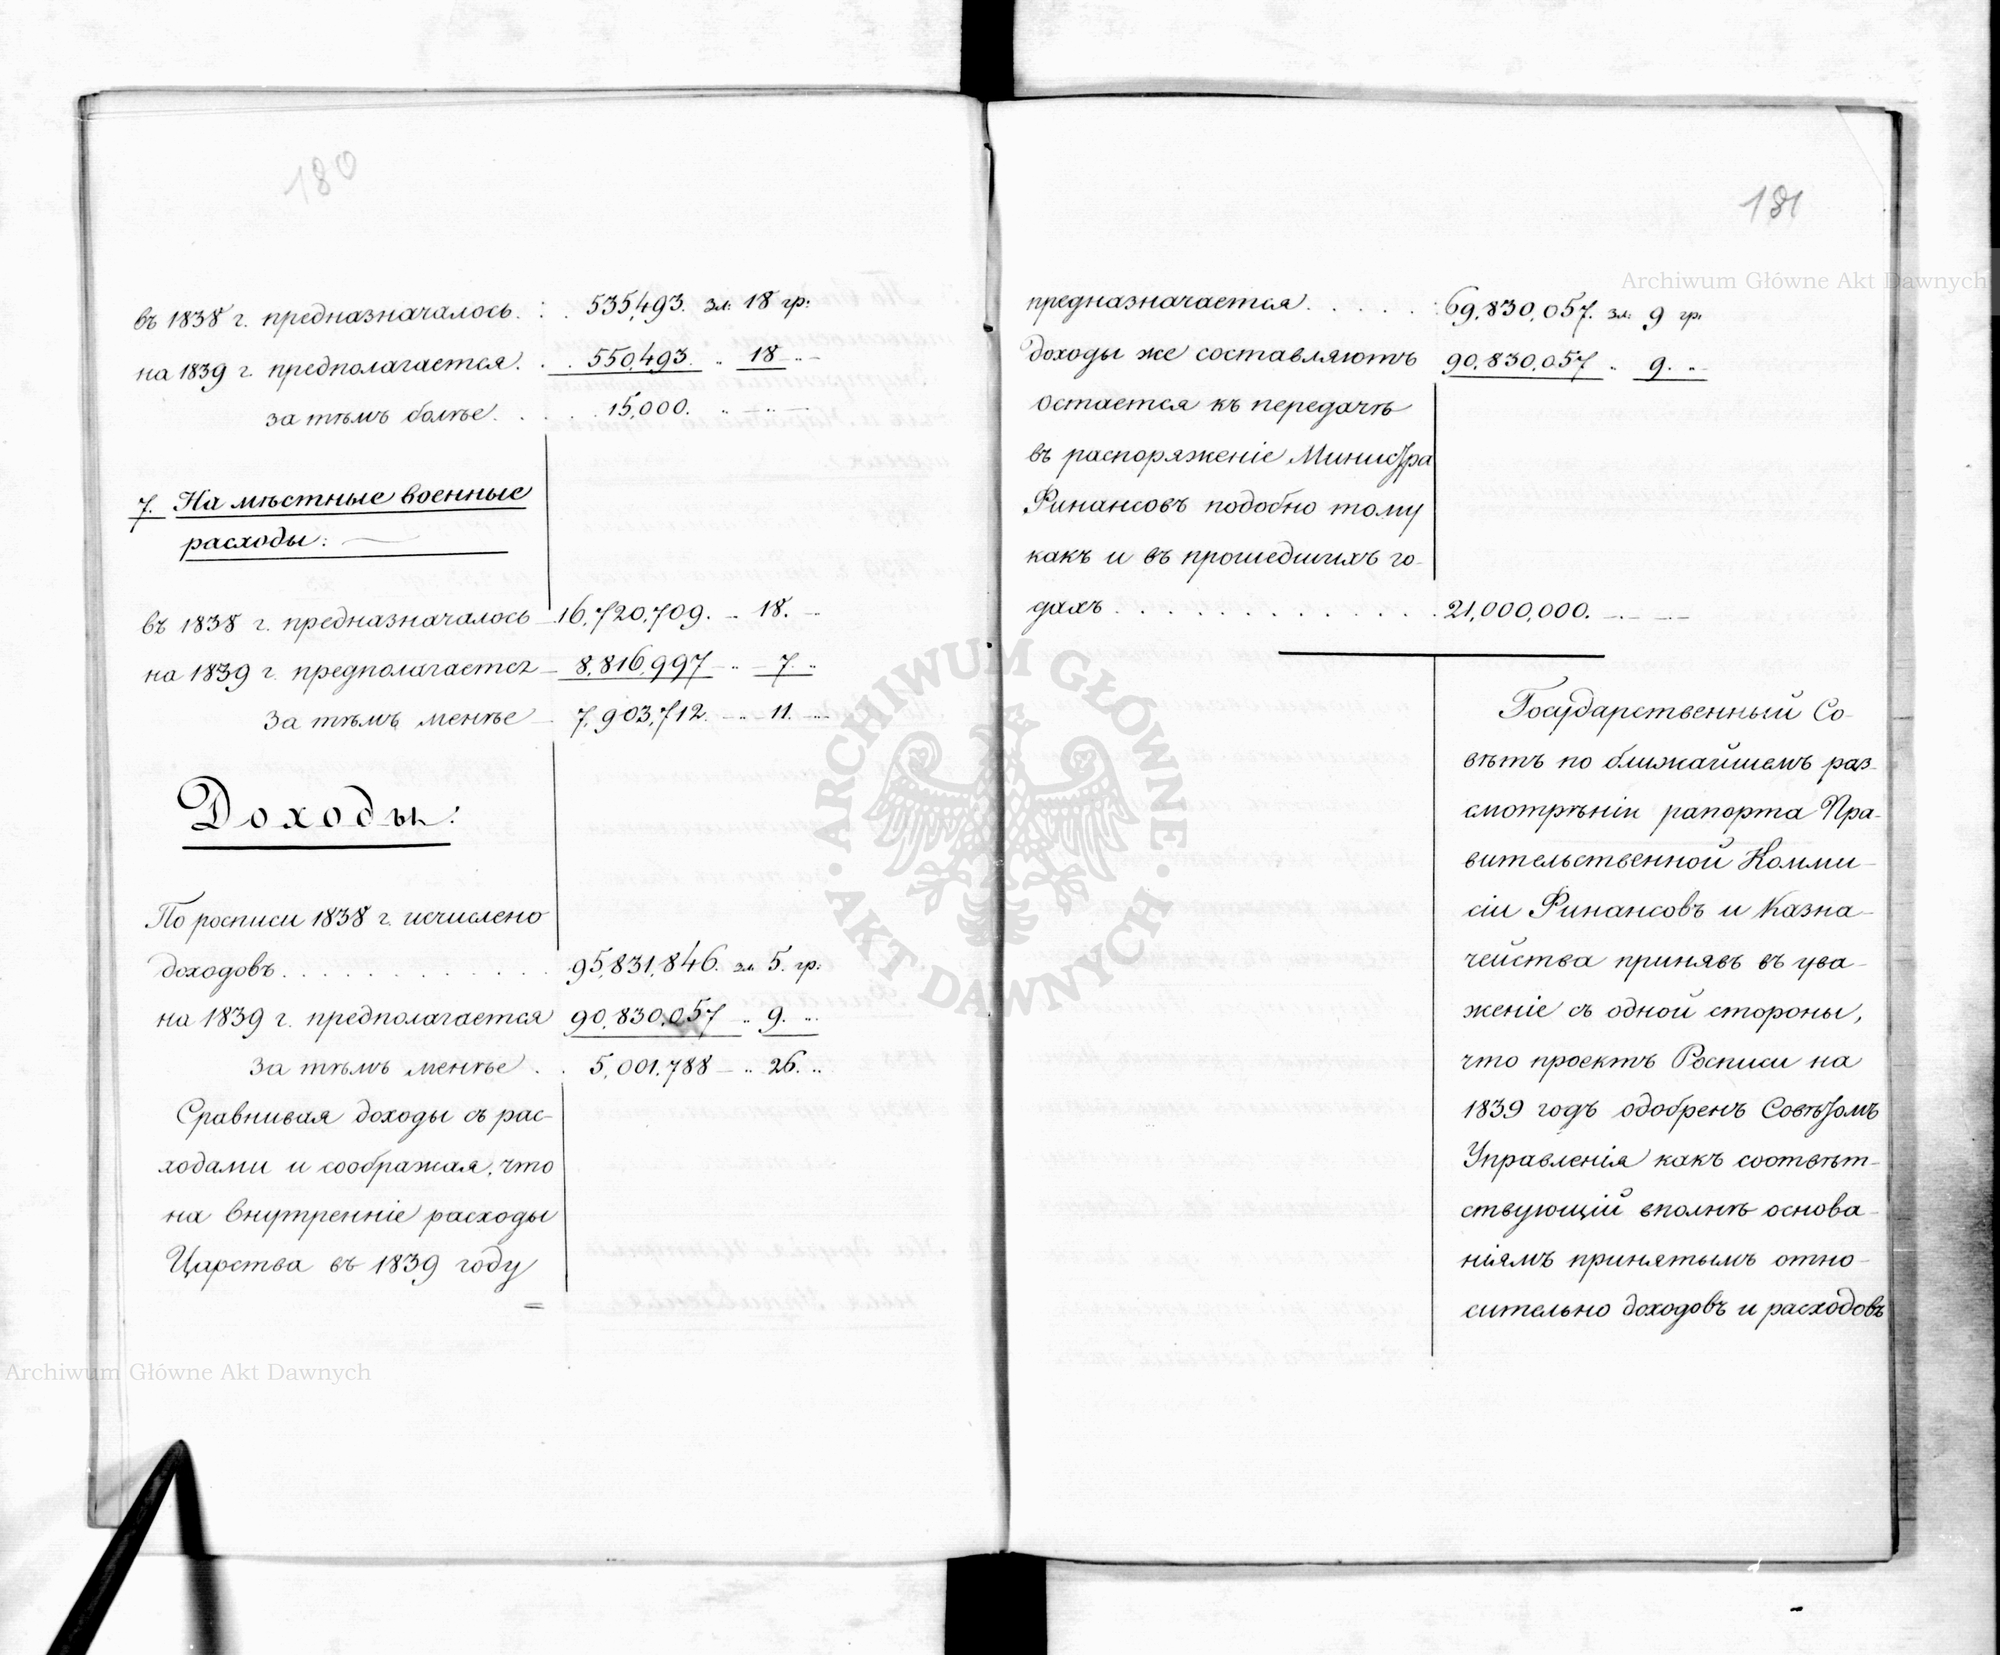 180
въ 1838 г. предназначалось. : . 535,493. зл: 18 гр:
на 1839 г. предполагается. . . 550,493. „ 18 „
за тѣмъ болѣе. . . . 15,000. „ „
7. На мѣстные военные
расходы:
въ 1838 г. предназначалось 16,720,709. „ 18. „
на 1839 г. предполагается 8,816,997 „ 7 „
За тѣмъ менѣе 7,903,712. „ 11. „
Доходы:
По росписи 1838 г. исчислено
доходовъ. . . . . . . . . . 95,831,846. зл. 5. гр:
на 1839 г. предполагается 90,830,057 „ 9. „
За тѣмъ менѣе . . 5,001,788 „ 26. „
Сравнивая доходы съ рас-
ходами и соображая, что
на внутренніе расходы
Царства въ 1839 году
181
предназначается. . . . . 69,830,057. зл: 9 гр.
доходы же составляютъ 90,830,057 „ 9. „
остается къ передачѣ
въ распоряженіе Министра
Финансовъ подобно тому
какъ и въ прошедшихъ го-
дахъ . . . . . . . . . . 21,000,000.
Государственный Со-
вѣтъ по ближайшемъ раз-
смотрѣніи рапорта Пра-
вительственной Комми-
сіи Финансовъ и Казна-
чейства принявъ въ ува-
женіе съ одной стороны,
что проектъ Росписи на
1839 годъ одобренъ Совѣтомъ
Управленія какъ соотвѣт-
ствующій вполнѣ основа-
ніямъ принятымъ отно-
сительно доходовъ и расходовъ
Archiwum Główne Akt Dawnych
Archiwum Główne Akt Dawnych
· ARCHIWUM GŁÓWNE · AKT DAWNYCH ·